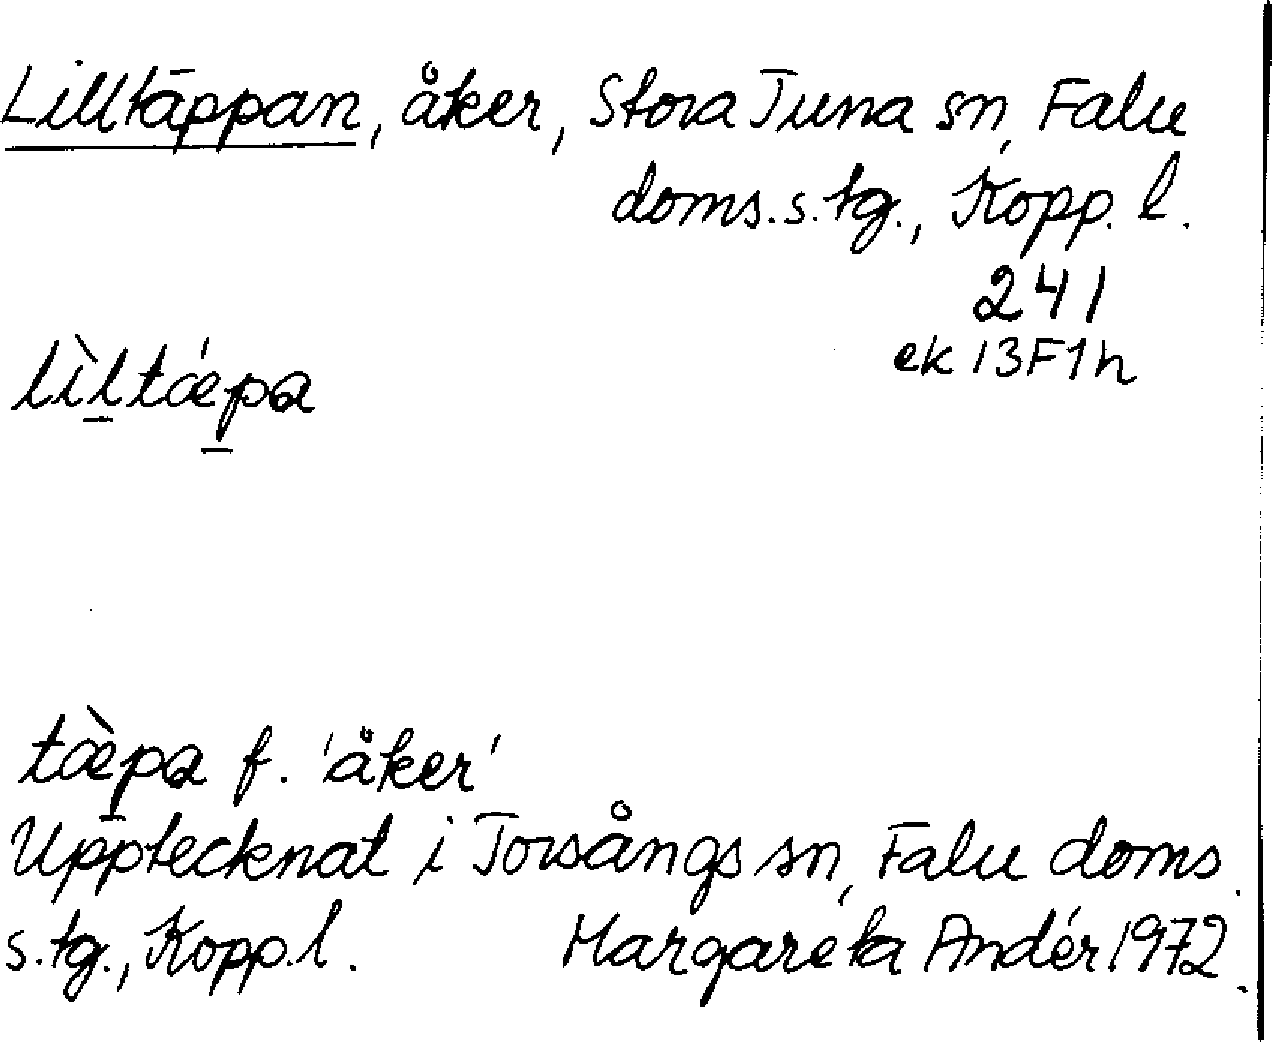 Lilltäppan, åker, Stora Tuna sn, Falu
doms.s.tg., Kopp. l.
241
ek 13F1h
lìl̠tǽp̠a
tæ̀p̠a f. 'åker'
Upptecknat i Torsångs sn, Falu doms.
s.tg., Kopp.l. Margareta Andér 1972.